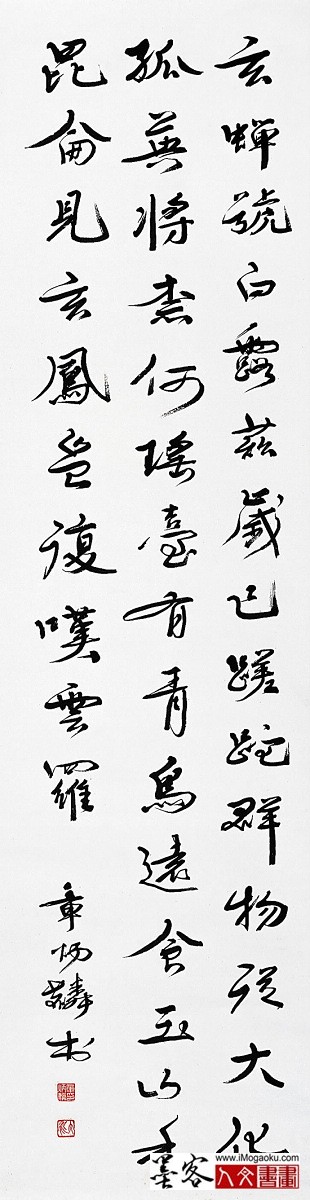 玄蟬號白露茲歲已蹉跎群物從大化
孤英將柰何瑤臺有青鳥遠食玉山禾
昆侖見玄鳳豈復嘆雲羅
章炳麟
墨客
www.iMogaoku.com
人文書畫